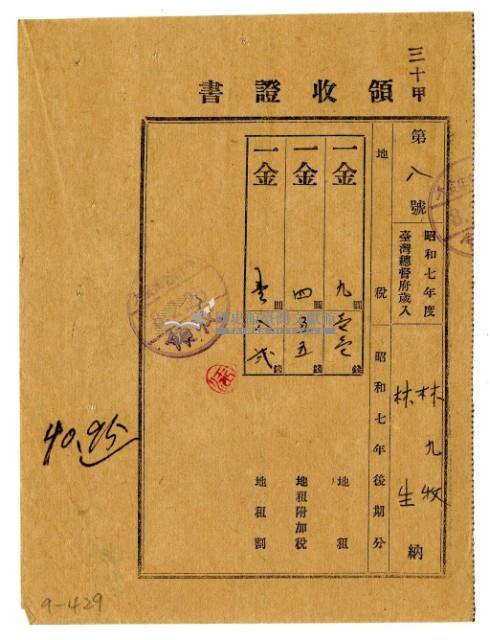 三十甲
領收證書
第八號
昭和七年度
臺灣總督府歲入
林九牧
林生
納
地税
昭和七年後期分
一金九圓錢
地租
一金四圓五五錢
地租附加税
一金圓錢
地租割
領
40.95
9-429